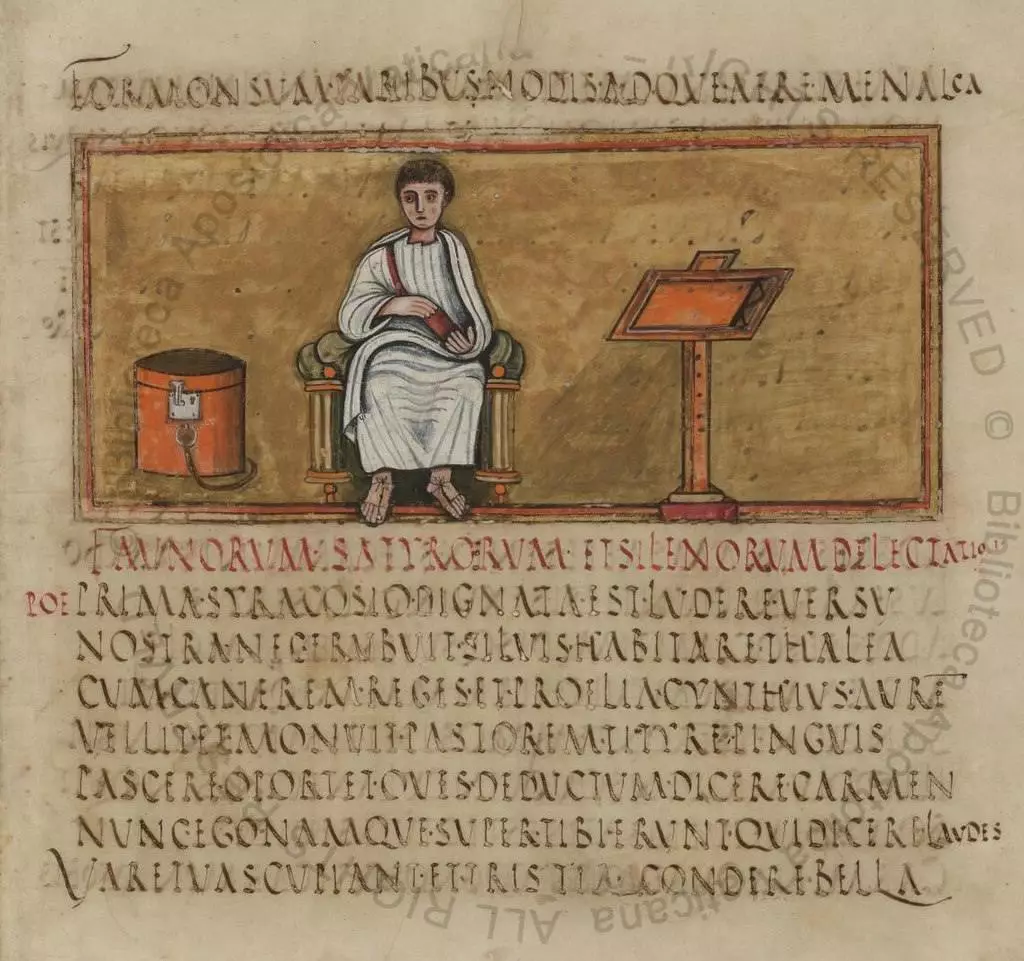 FORMONSVM·PARIBVS·NODIS·ADQVE·AERE MENALCA
FAVNORVM·SATYRORVM·ET SILENORVM DELECTATIO
POE PRIMA·SYRACOSIO·DIGNATA·EST·LVDERE·VERSV
NOSTRA·NEC·ERVBVIT·SILVIS·HABITARE·THALEA
CVM·CANEREM·REGES·ET·PROELIA·CYNTHIVS·AVRE̅
VELLIT·ET·MONVIT·PASTOREM·TITYRE·PINGVIS
PASCERE·OPORTET·OVES·DEDVCTVM·DICERE·CARMEN
NVNC·EGO·NAMQVE·SVPER·TIBI·ERVNT·QVI·DICERE·LAVDES
VARE·TVAS·CVPIANT·ET·TRISTIA·CONDERE·BELLA
© Biblioteca Apostolica Vaticana ALL RIGHTS RESERVED